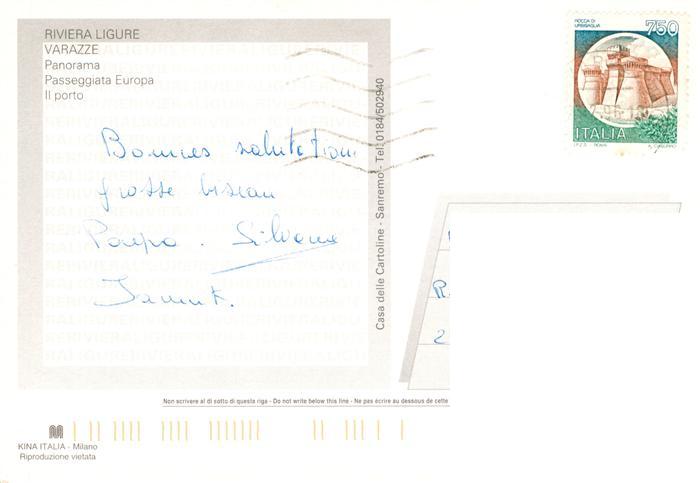 RIVIERA LIGURE
VARAZZE
Panorama
Passeggiata Europa
Il porto
Casa delle Cartoline - Sanremo - Tel. 0184/502940
ROCCA DI
URBISAGLIA
750
ITALIA
I.P.Z.S. - ROMA
Bonnes salutations
grosse biseau
Papa. Silvana
Jannik.
R
2
Non scrivere al di sotto di questa riga - Do not write below this line - Ne pas écrire au dessous de cette
KINA ITALIA - Milano
Riproduzione vietata